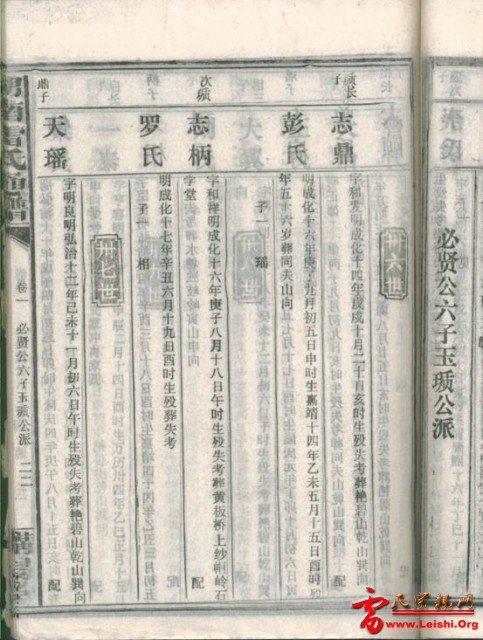 必贤公六子玉琐公派
卅六世
长子
志鼎
字和
明成化十四年戊戌十月二十日亥时生殁失考葬艳碧山乾山巽向
配
彭氏
明成化十六年庚子九月初五日申时生嘉靖十四年乙未五月十五日酉时殁
年五十六岁葬同夫山向
子一 瑶
次
子
志柄
字和祥明成化十六年庚子八月十八日午时生殁失考葬黄板桥上纱帽岭石
字堂
寅山申向
配
罗氏
明成化十七年辛丑六月十九日酉时生殁葬失考
子一 相
卅七世
鼎子
天瑶
字明良明弘治十二年己未十一月初六日午时生殁失考葬艳碧山乾山巽向
配
卷一
必贤公六子玉琐公派
二二
雷氏宗亲网
www.Leishi.Org